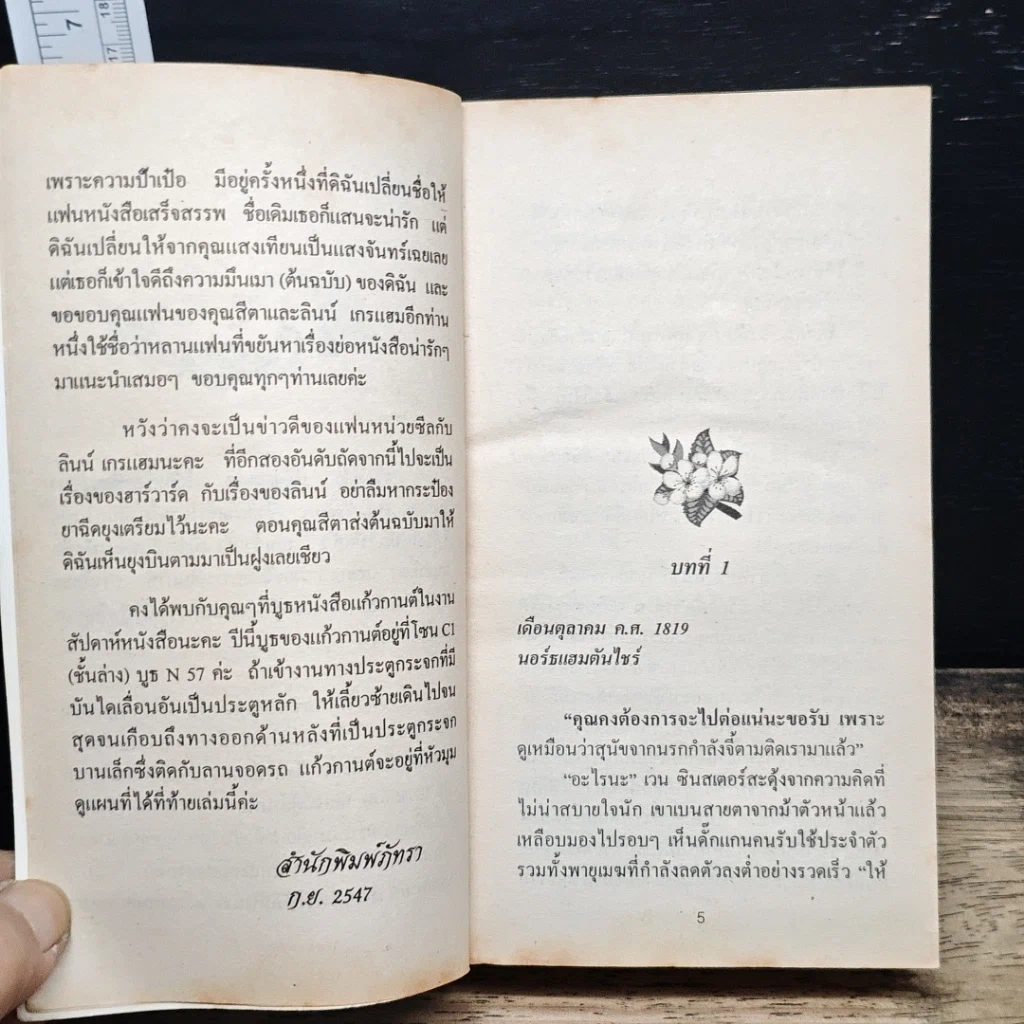 7
18
17
เพราะความป้ำเป๋อ มีอยู่ครั้งหนึ่งที่ดิฉันเปลี่ยนชื่อให้
แฟนหนังสือเสร็จสรรพ ชื่อเดิมเธอก็แสนจะน่ารัก แต่
ดิฉันเปลี่ยนให้จากคุณแสงเทียนเป็นแสงจันทร์เฉยเลย
แต่เธอก็เข้าใจดีถึงความมึนเมา (ต้นฉบับ) ของดิฉัน และ
ขอขอบคุณแฟนของคุณสีตาและลินน์ เกรแฮมอีกท่าน
หนึ่งใช้ชื่อว่าหลานแฟนที่ขยันหาเรื่องย่อหนังสือน่ารักๆ
มาแนะนำเสมอๆ ขอบคุณทุกๆท่านเลยค่ะ
หวังว่าคงจะเป็นข่าวดีของแฟนหน่วยซีลกับ
ลินน์ เกรแฮมนะคะ ที่อีกสองอันดับถัดจากนี้ไปจะเป็น
เรื่องของฮาร์วาร์ด กับเรื่องของลินน์ อย่าลืมหากระป๋อง
ยาฉีดยุงเตรียมไว้นะคะ ตอนคุณสีตาส่งต้นฉบับมาให้
ดิฉันเห็นยุงบินตามมาเป็นฝูงเลยเชียว
คงได้พบกับคุณๆที่บูธหนังสือแก้วกานต์ในงาน
สัปดาห์หนังสือนะคะ ปีนี้บูธของแก้วกานต์อยู่ที่โซน C1
(ชั้นล่าง) บูธ N 57 ค่ะ ถ้าเข้างานทางประตูกระจกที่มี
บันไดเลื่อนอันเป็นประตูหลัก ให้เลี้ยวซ้ายเดินไปจน
สุดจนเกือบถึงทางออกด้านหลังที่เป็นประตูกระจก
บานเล็กซึ่งติดกับลานจอดรถ แก้วกานต์จะอยู่ที่หัวมุม
ดูแผนที่ได้ที่ท้ายเล่มนี้ค่ะ
สำนักพิมพ์ภัทรา
ก.ย. 2547
บทที่ 1
เดือนตุลาคม ค.ศ. 1819
นอร์ธแฮมตันไชร์
“คุณคงต้องการจะไปต่อแน่นะขอรับ เพราะ
ดูเหมือนว่าสุนัขจากนรกกำลังจี้ตามติดเรามาแล้ว”
“อะไรนะ” เวน ซินสเตอร์สะดุ้งจากความคิดที่
ไม่น่าสบายใจนัก เขาเบนสายตาจากม้าตัวหน้าแล้ว
เหลือบมองไปรอบๆ เห็นดั๊กแกนคนรับใช้ประจำตัว
รวมทั้งพายุเมฆที่กำลังลดตัวลงต่ำอย่างรวดเร็ว “ให้
5